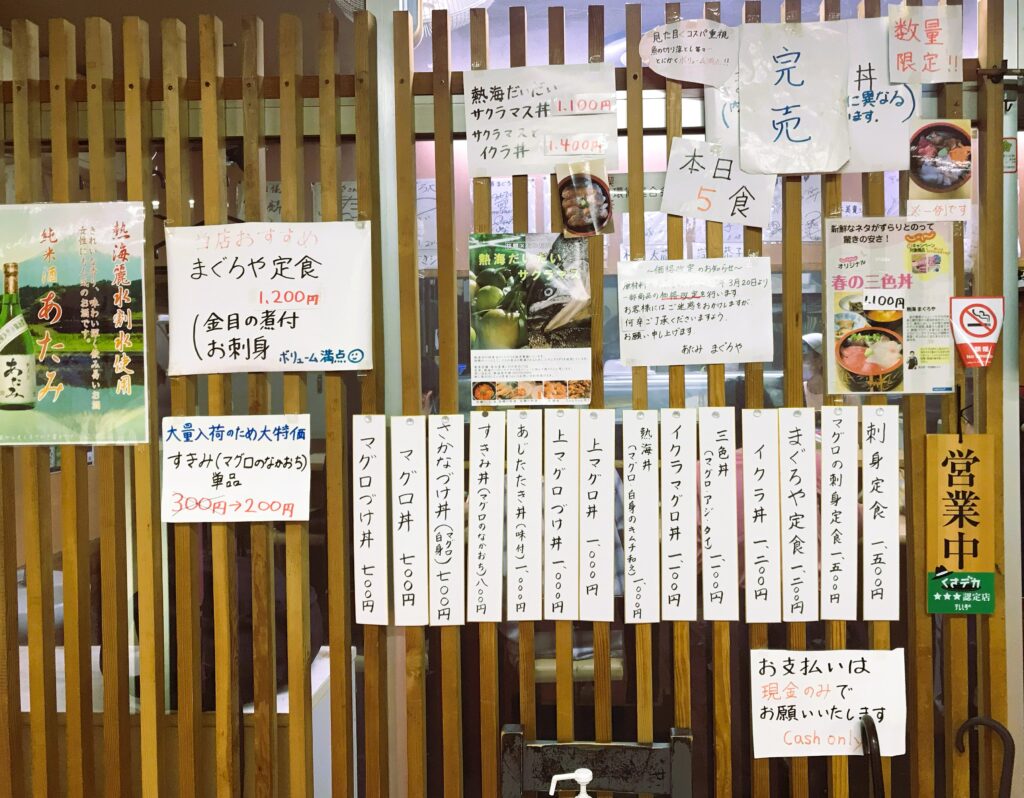 熱海麗水割水使用
きれいな
味わい
女性に
のお酒です。
純米酒 あたみ
あたみ
当店おすすめ
まぐろや定食
1,200円
金目の煮付
お刺身
ボリューム満点
大量入荷のため大特価
すきみ(マグロのなかおち)
単品
300円→200円
熱海だいだい
サクラマス丼 1,100円
サクラマスと
イクラ丼 1,400円
熱海だいだい
サクラマス
見た目よりコスパ重視
とにかくボリューム
完売
丼
に異なる
ます。
数量
限定!!
本日
5食
※一例です
~価格改定のお知らせ~
3月20日より
一部商品の価格改定を行います
お客様にはご迷惑をおかけしますが
何卒ご了承くださいますよう、
お願い申し上げます
あたみ まぐろや
新鮮なネタがずらりとのって
驚きの安さ!
オリジナル
春の三色丼
1,100円
熱海 まぐろや
禁煙
刺身定食 一、五〇〇円
マグロの刺身定食 一、五〇〇円
まぐろや定食 一、二〇〇円
イクラ丼 一、二〇〇円
三色丼(マグロ・アジ・タイ) 一、一〇〇円
イクラマグロ丼 一、一〇〇円
熱海丼(マグロ・白身のキムチ和え) 一、〇〇〇円
上マグロ丼 一、〇〇〇円
上マグロづけ丼 一、〇〇〇円
あじたたき丼(味付) 一、〇〇〇円
すきみ丼(マグロのなかおち) 八〇〇円
さかなづけ丼(マグロ・白身) 七〇〇円
マグロ丼 七〇〇円
マグロづけ丼 七〇〇円
営業中
くさデカ
★★★認定店
テレしず
お支払いは
現金のみで
お願いいたします
Cash only